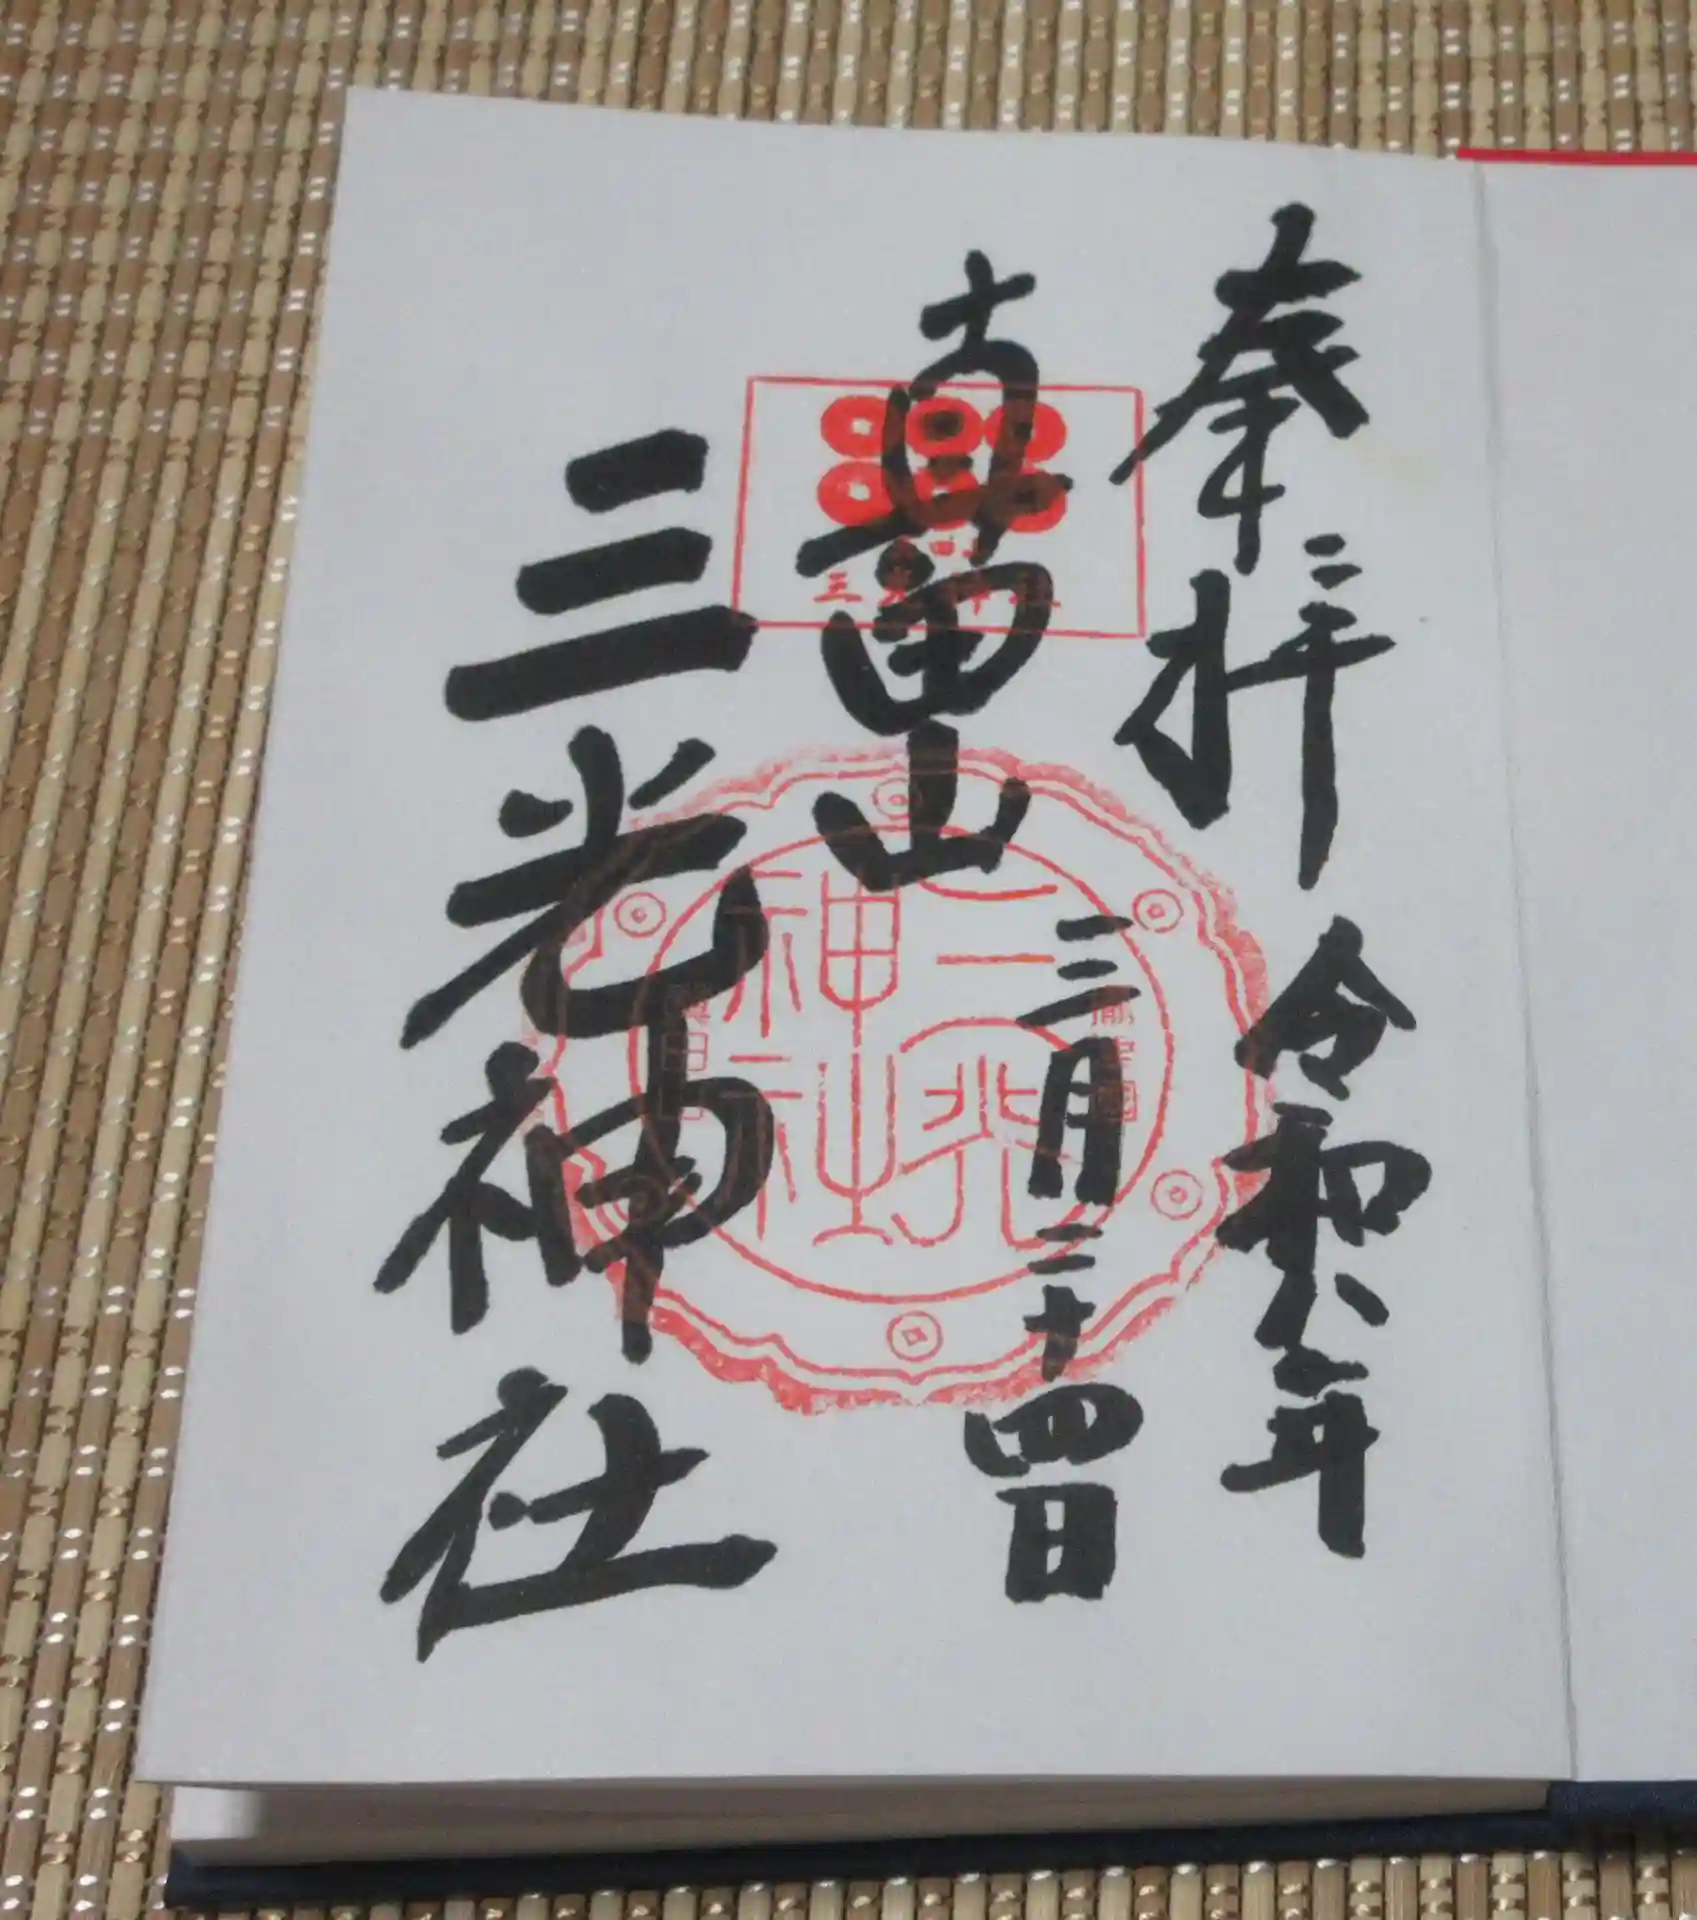 奉拝 令和六年
三月二十四日
真田山
三光神社
真田山
三光神社
三光
神社